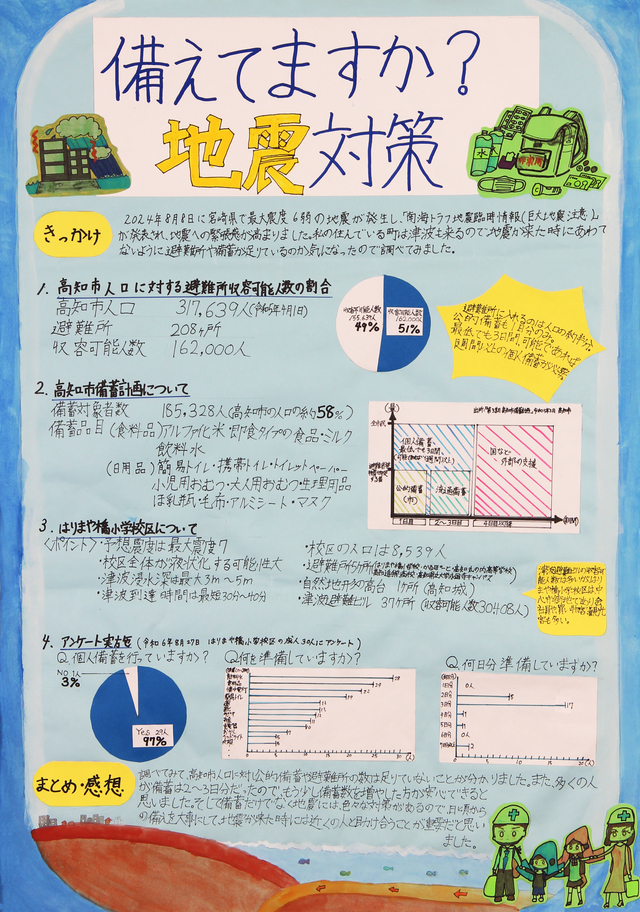 備えてますか？
地震対策
水
きっかけ
2024年8月8日に宮崎県で最大震度6弱の地震が発生し、「南海トラフ地震臨時情報(巨大地震注意)」
が発表され、地震への緊張感が高まりました。私の住んでいる町は津波も来るので地震が来た時にあわて
ないように避難所や備蓄が足りているのか気になったので調べてみました。
1. 高知市人口に対する避難所収容可能人数の割合
高知市人口 317,639人(令和5年4月1日)
避難所 208ヶ所
収容可能人数 162,000人
49%
収容可能人数
162,000人
51%
避難所に入れるのは人口の約半分。
公的備蓄も1日分のみ。
最低でも3日間、可能であれば
1週間以上の個人備蓄が必要。
2. 高知市備蓄計画について
備蓄対象者数 185,328人(高知市の人口の約58%)
備蓄品目(食料品)アルファ化米・即食タイプの食品・ミルク
飲料水
(日用品)簡易トイレ・携帯トイレ・トイレットペーパー
小児用おむつ・大人用おむつ・生理用品
ほ乳瓶・毛布・アルミシート・マスク
(量)
個人備蓄、
最低でも3日間、
(可能であれば1週間以上)
国など
外部の支援
公的備蓄
(市)
流通備蓄
1日目 2～3日目 4日目以降
(期間)
3. はりまや橋小学校区について
〈ポイント〉・予想震度は最大震度7
・校区全体が液状化する可能性大
・津波浸水深は最大3m～5m
・津波到達時間は最短30分～40分
・校区の人口は8,539人
・避難所5ヶ所
・自然地形の高台 1ヶ所(高知城)
・津波避難ビル 37ヶ所(収容可能人数30408人)
4. アンケート実施 (令和6年8月27日 はりまや橋小学校区の成人30人にアンケート)
Q. 個人備蓄を行っていますか？
NO 1人
3%
Yes 29人
97%
Q何を準備していますか？
Q. 何日分準備していますか？
まとめ・感想
調べてみて、高知市人口に対し公的備蓄や避難所の数は足りていないことが分かりました。また、多くの人
が備蓄は2～3日分だったので、もう少し備蓄数を増やした方が安心できると
思いました。そして備蓄だけでなく地震には、色々な対策があるので、日頃から
の備えを大事にして、地震が来た時には近くの人と助け合うことが重要だと思い
ました。